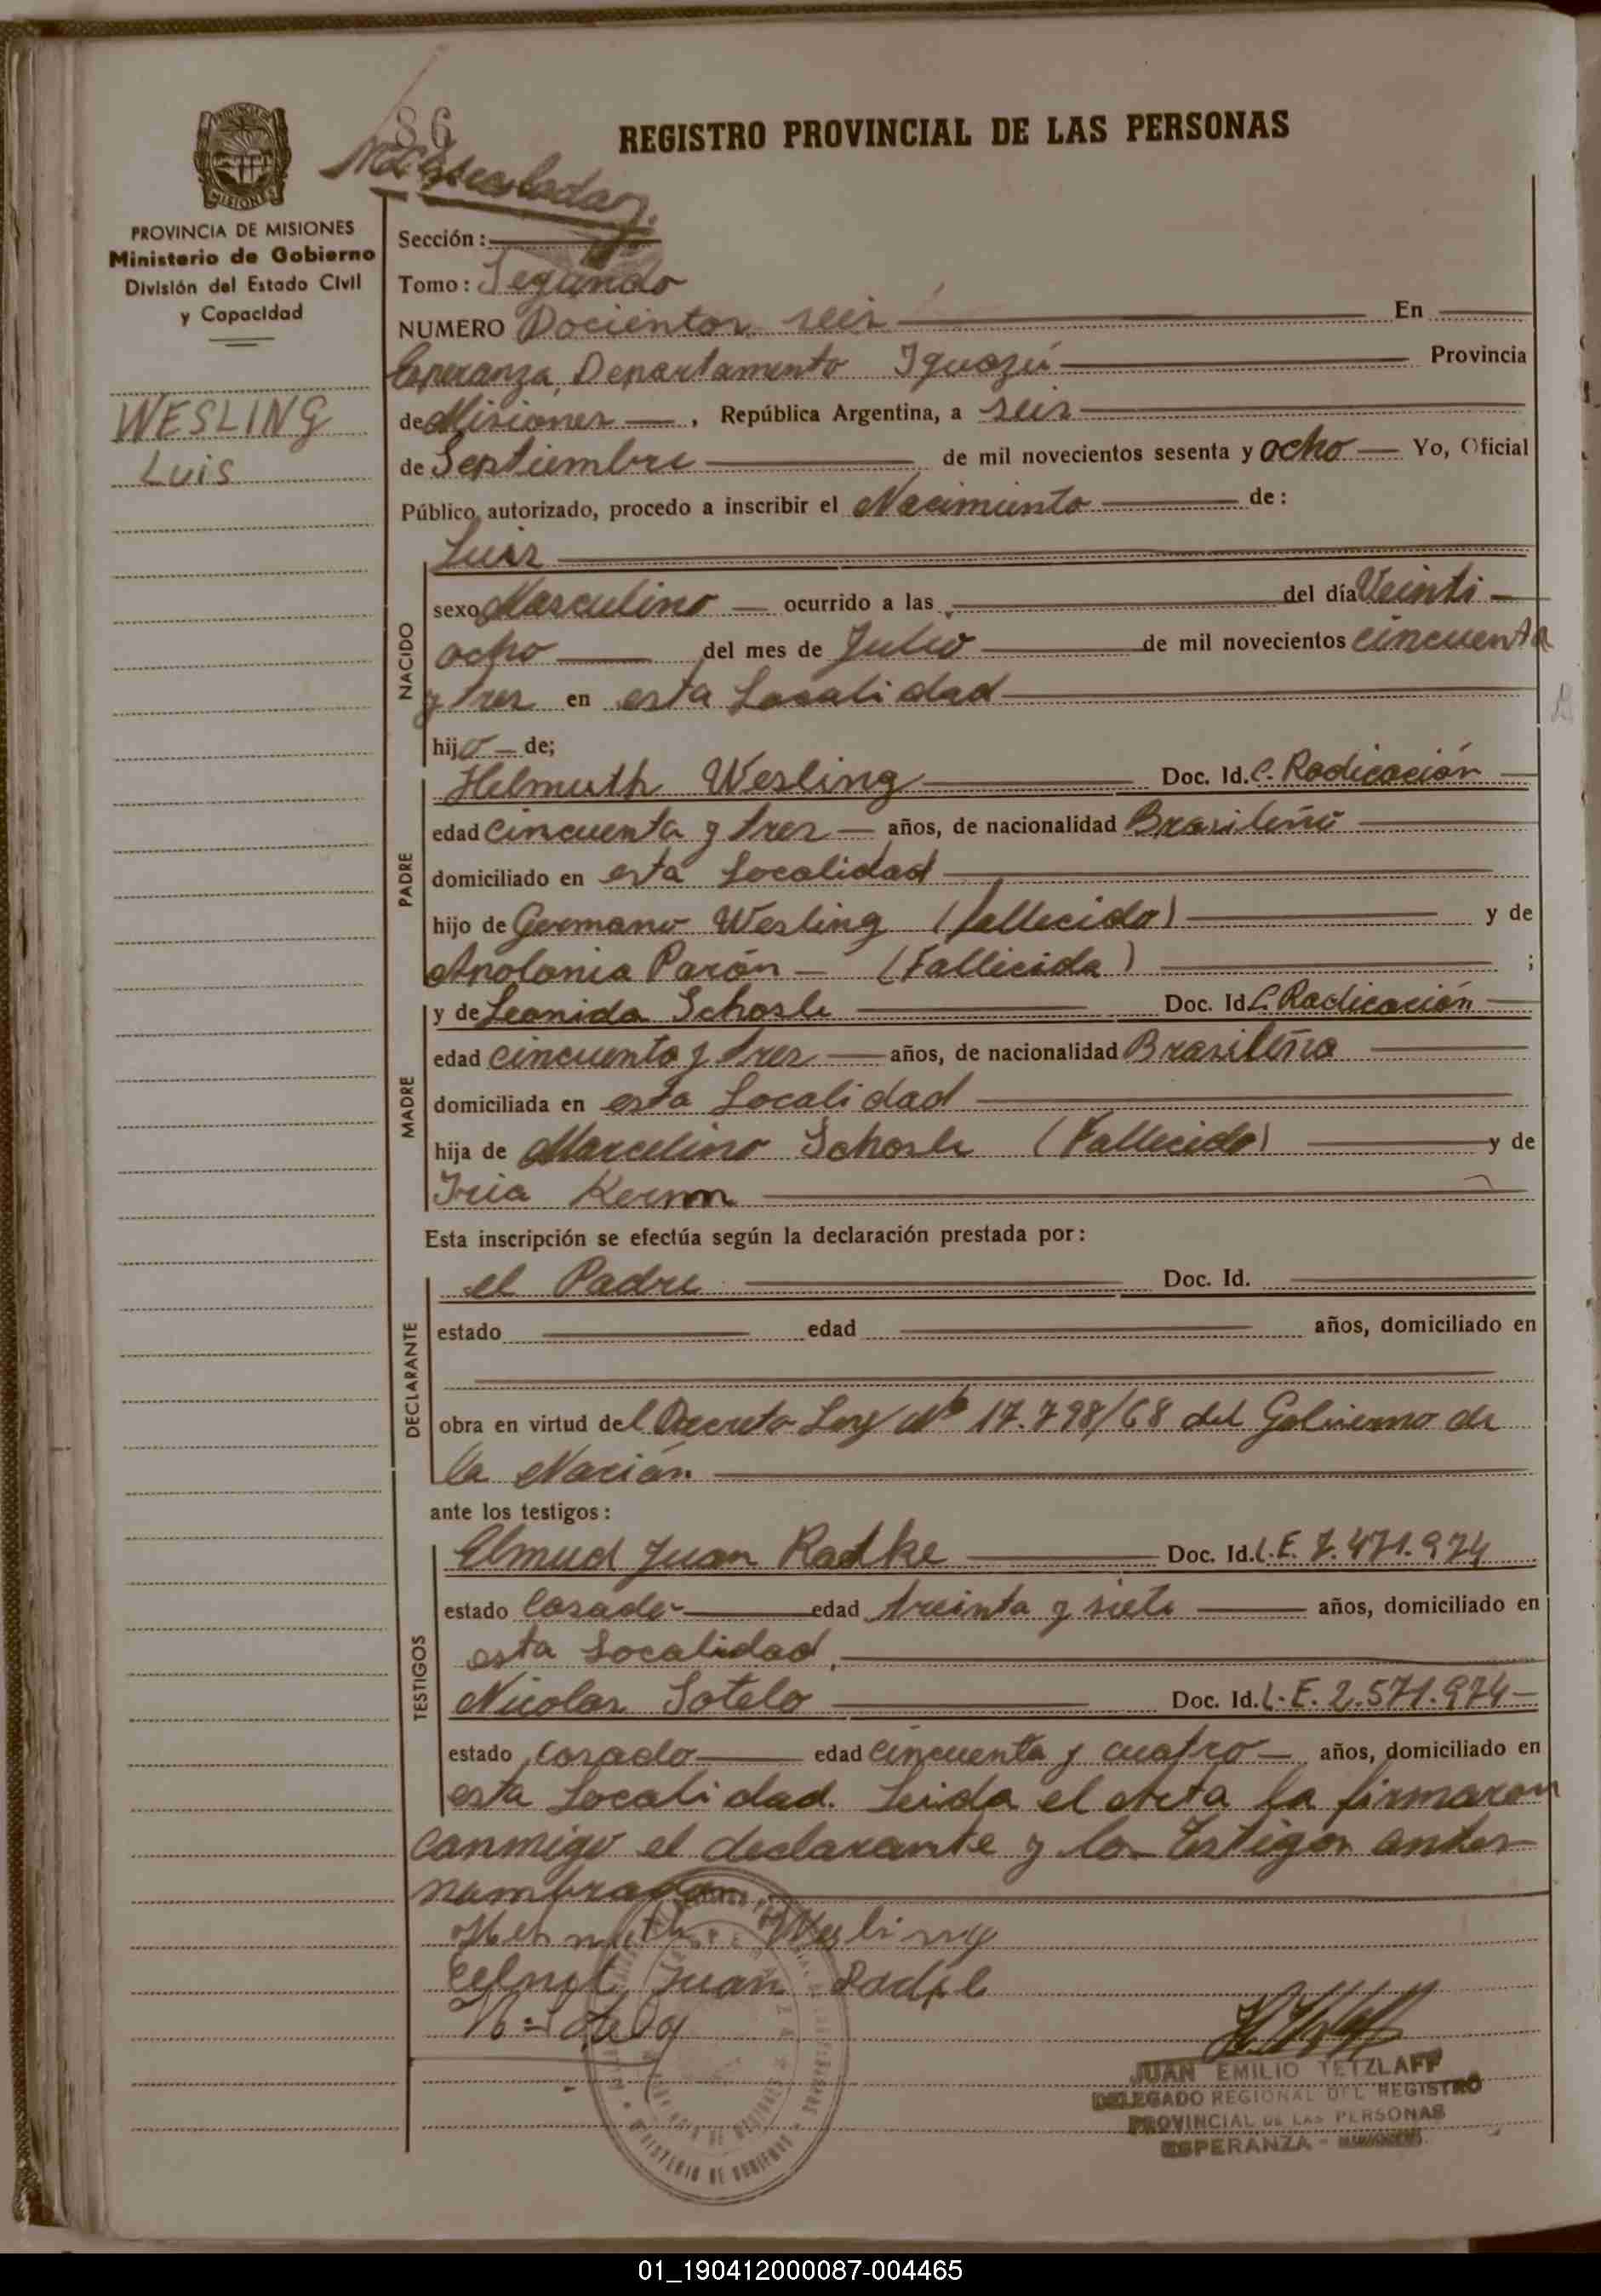 86
REGISTRO PROVINCIAL DE LAS PERSONAS
MISIONES
PROVINCIA DE MISIONES
Ministerio de Gobierno
División del Estado Civil
y Capacidad
WESLING
Luis
Sección:
Tomo: Segundo
NUMERO Docientos seis En
Esperanza, Departamento Iguazú Provincia
de Misiones, República Argentina, a seis
de Septiembre de mil novecientos sesenta y ocho Yo, Oficial
Público autorizado, procedo a inscribir el Nacimiento de:
Luis
NACIDO
sexo Masculino ocurrido a las del día Veinti
ocho del mes de Julio de mil novecientos cincuenta
y tres en esta Localidad
hijo de;
PADRE
Helmuth Wesling Doc. Id. C. Radicación
edad cincuenta y tres años, de nacionalidad Brasileño
domiciliado en esta Localidad
hijo de Germano Wesling (fallecido) y de
Apolonia (Fallecida);
MADRE
y de Leonida Schosle Doc. Id. C. Radicación
edad cincuenta y tres años, de nacionalidad Brasileña
domiciliada en esta Localidad
hija de Marcelino Schosle (Fallecido) y de
Iria
Esta inscripción se efectúa según la declaración prestada por:
DECLARANTE
el Padre Doc. Id.
estado edad años, domiciliado en
obra en virtud del Decreto Ley Nº 17.798/68 del Gobierno de
la Nación
ante los testigos:
TESTIGOS
Elmud Juan Radke Doc. Id. L.E. 7.471.974
estado Casado edad treinta y siete años, domiciliado en
esta Localidad.
Nicolas Sotelo Doc. Id. L.E. 2.571.974
estado casado edad cincuenta y cuatro años, domiciliado en
esta Localidad. Leida el Acta la firmaron
conmigo el declarante y los testigos antes
nombrados.
Helmuth Wesling
Juan
JUAN EMILIO TETZLAFF
DELEGADO REGIONAL DEL REGISTRO
PROVINCIAL DE LAS PERSONAS
ESPERANZA - MISIONES
MINISTERIO DE GOBIERNO
01_190412000087-004465